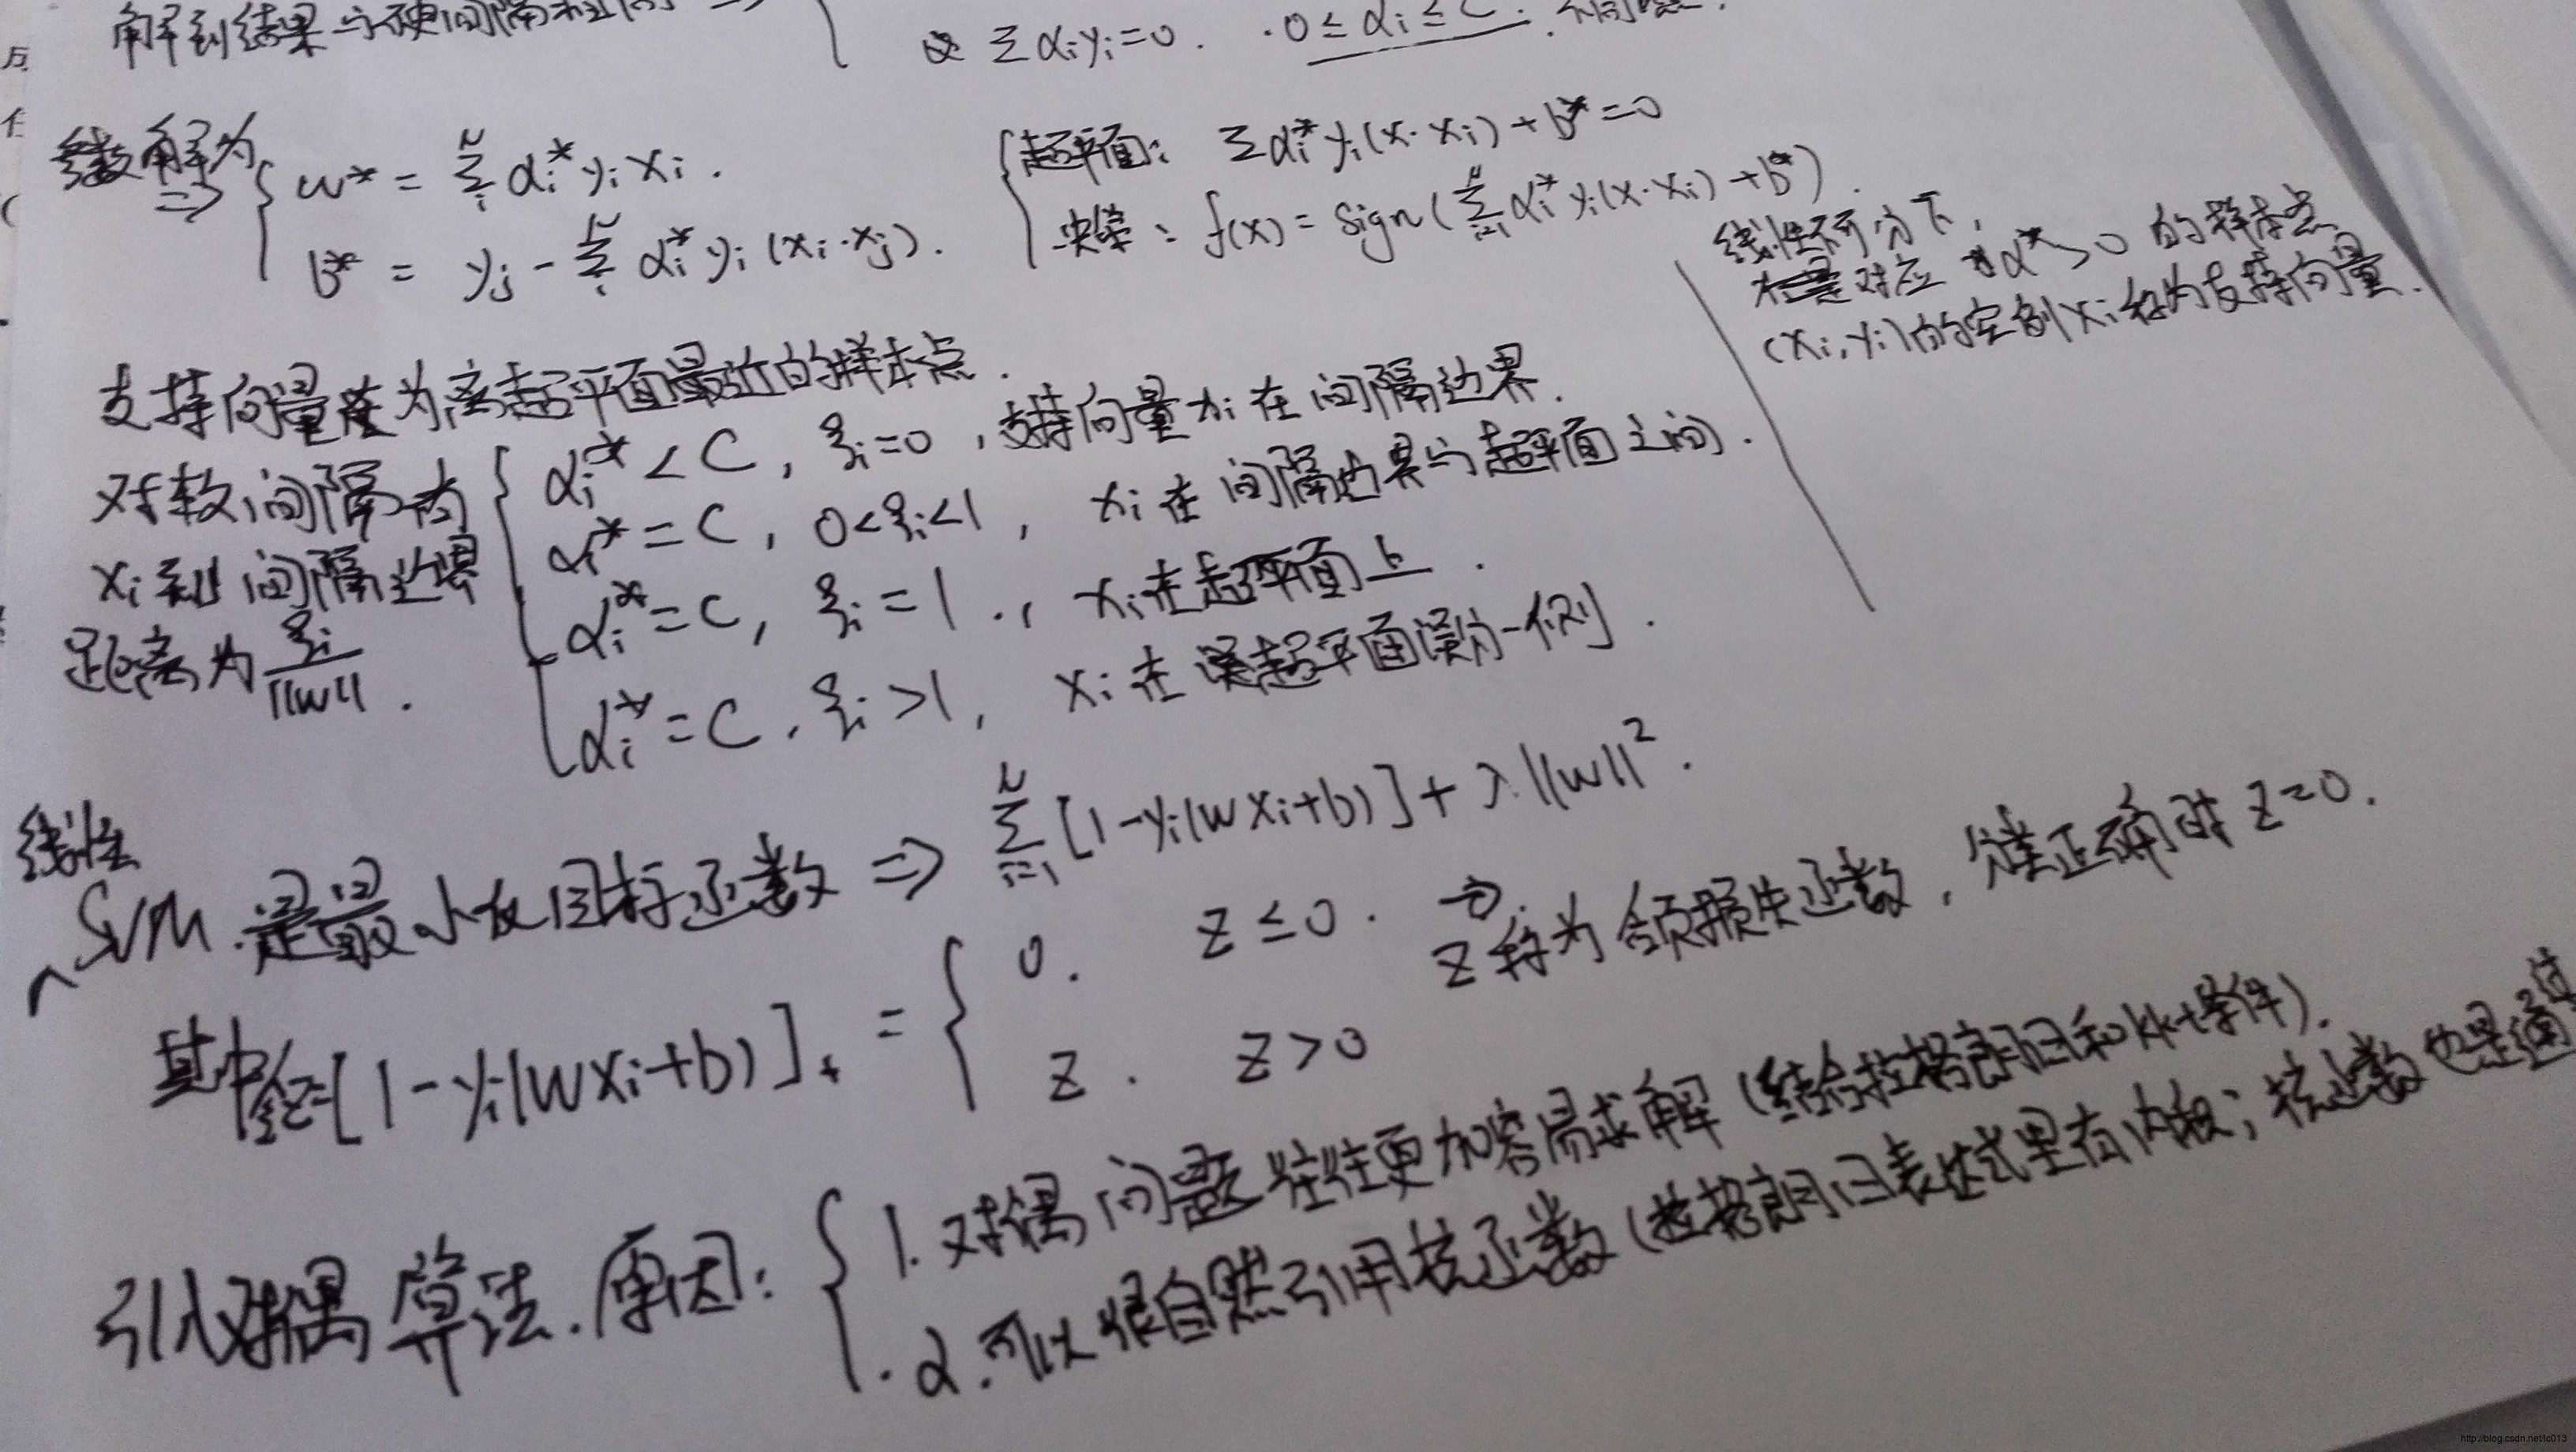 解到结果与硬间隔
Σαiyi=0. ·0≤αi≤C.
解为
=> { w* = Σ_i^N αi* yi xi .
b* = yj - Σ_i^N αi* yi (xi·xj).
{ 超平面: Σαi* yi(x·xi)+b*=0
决策: f(x)=sign(Σ_{i=1}^N αi* yi(x·xi)+b*).
线性不可分下,
对应 α*>0 的样本点
(xi, yi)的实例xi称为支持向量.
支持向量 为离超平面最近的样本点.
对软间隔有
xi到间隔边界
距离为 ξi/||w|| .
{ αi*<C, ξi=0, 支持向量xi在间隔边界.
αi*=C, 0<ξi<1, xi在间隔边界与超平面之间.
αi*=C, ξi=1., xi在超平面上.
αi*=C, ξi>1, xi在超平面误分一侧.
线性
SVM.是最小化目标函数 => Σ_{i=1}^N [1-yi(wxi+b)]+λ||w||².
其中令z=[1-yi(wxi+b)]+ = { 0. z≤0. →.
z . z>0
z称为合页损失函数, 分类正确时 z=0.
引入对偶算法.原因:
{ 1. 对偶问题往往更加容易求解 (结合拉格朗日和kkt条件).
2. 可以很自然引用核函数 (拉格朗日表达式里有内积; 核函数也是通过
http://blog.csdn.net/lc013